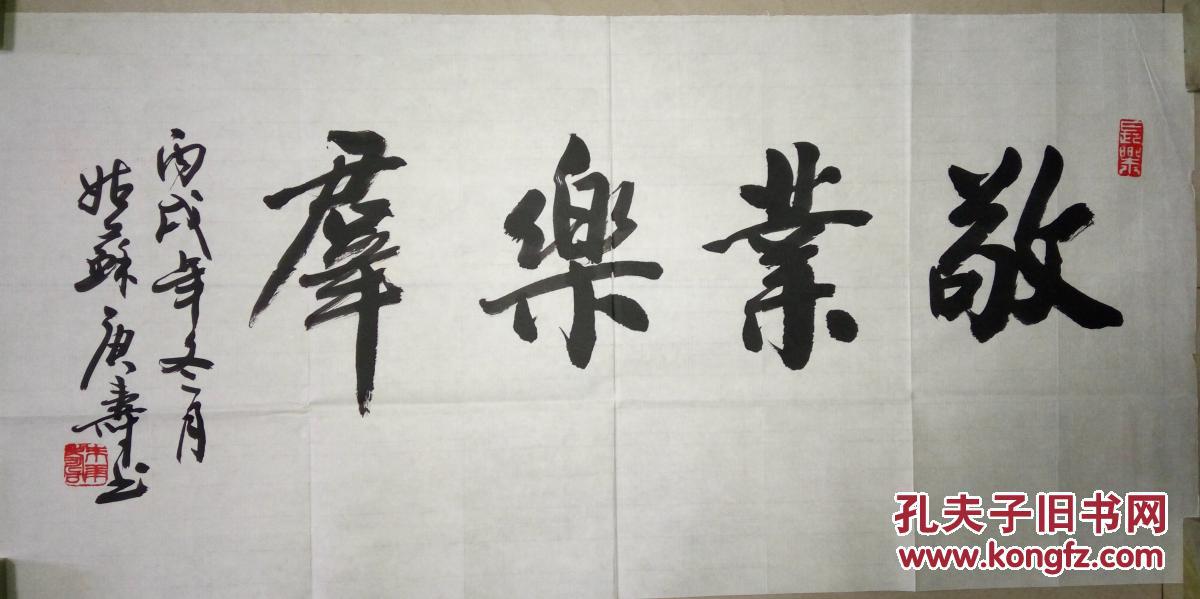 敬業樂羣
丙戌年冬月
姑蘇庚壽书
長樂
孔夫子旧书网
www.kongfz.com